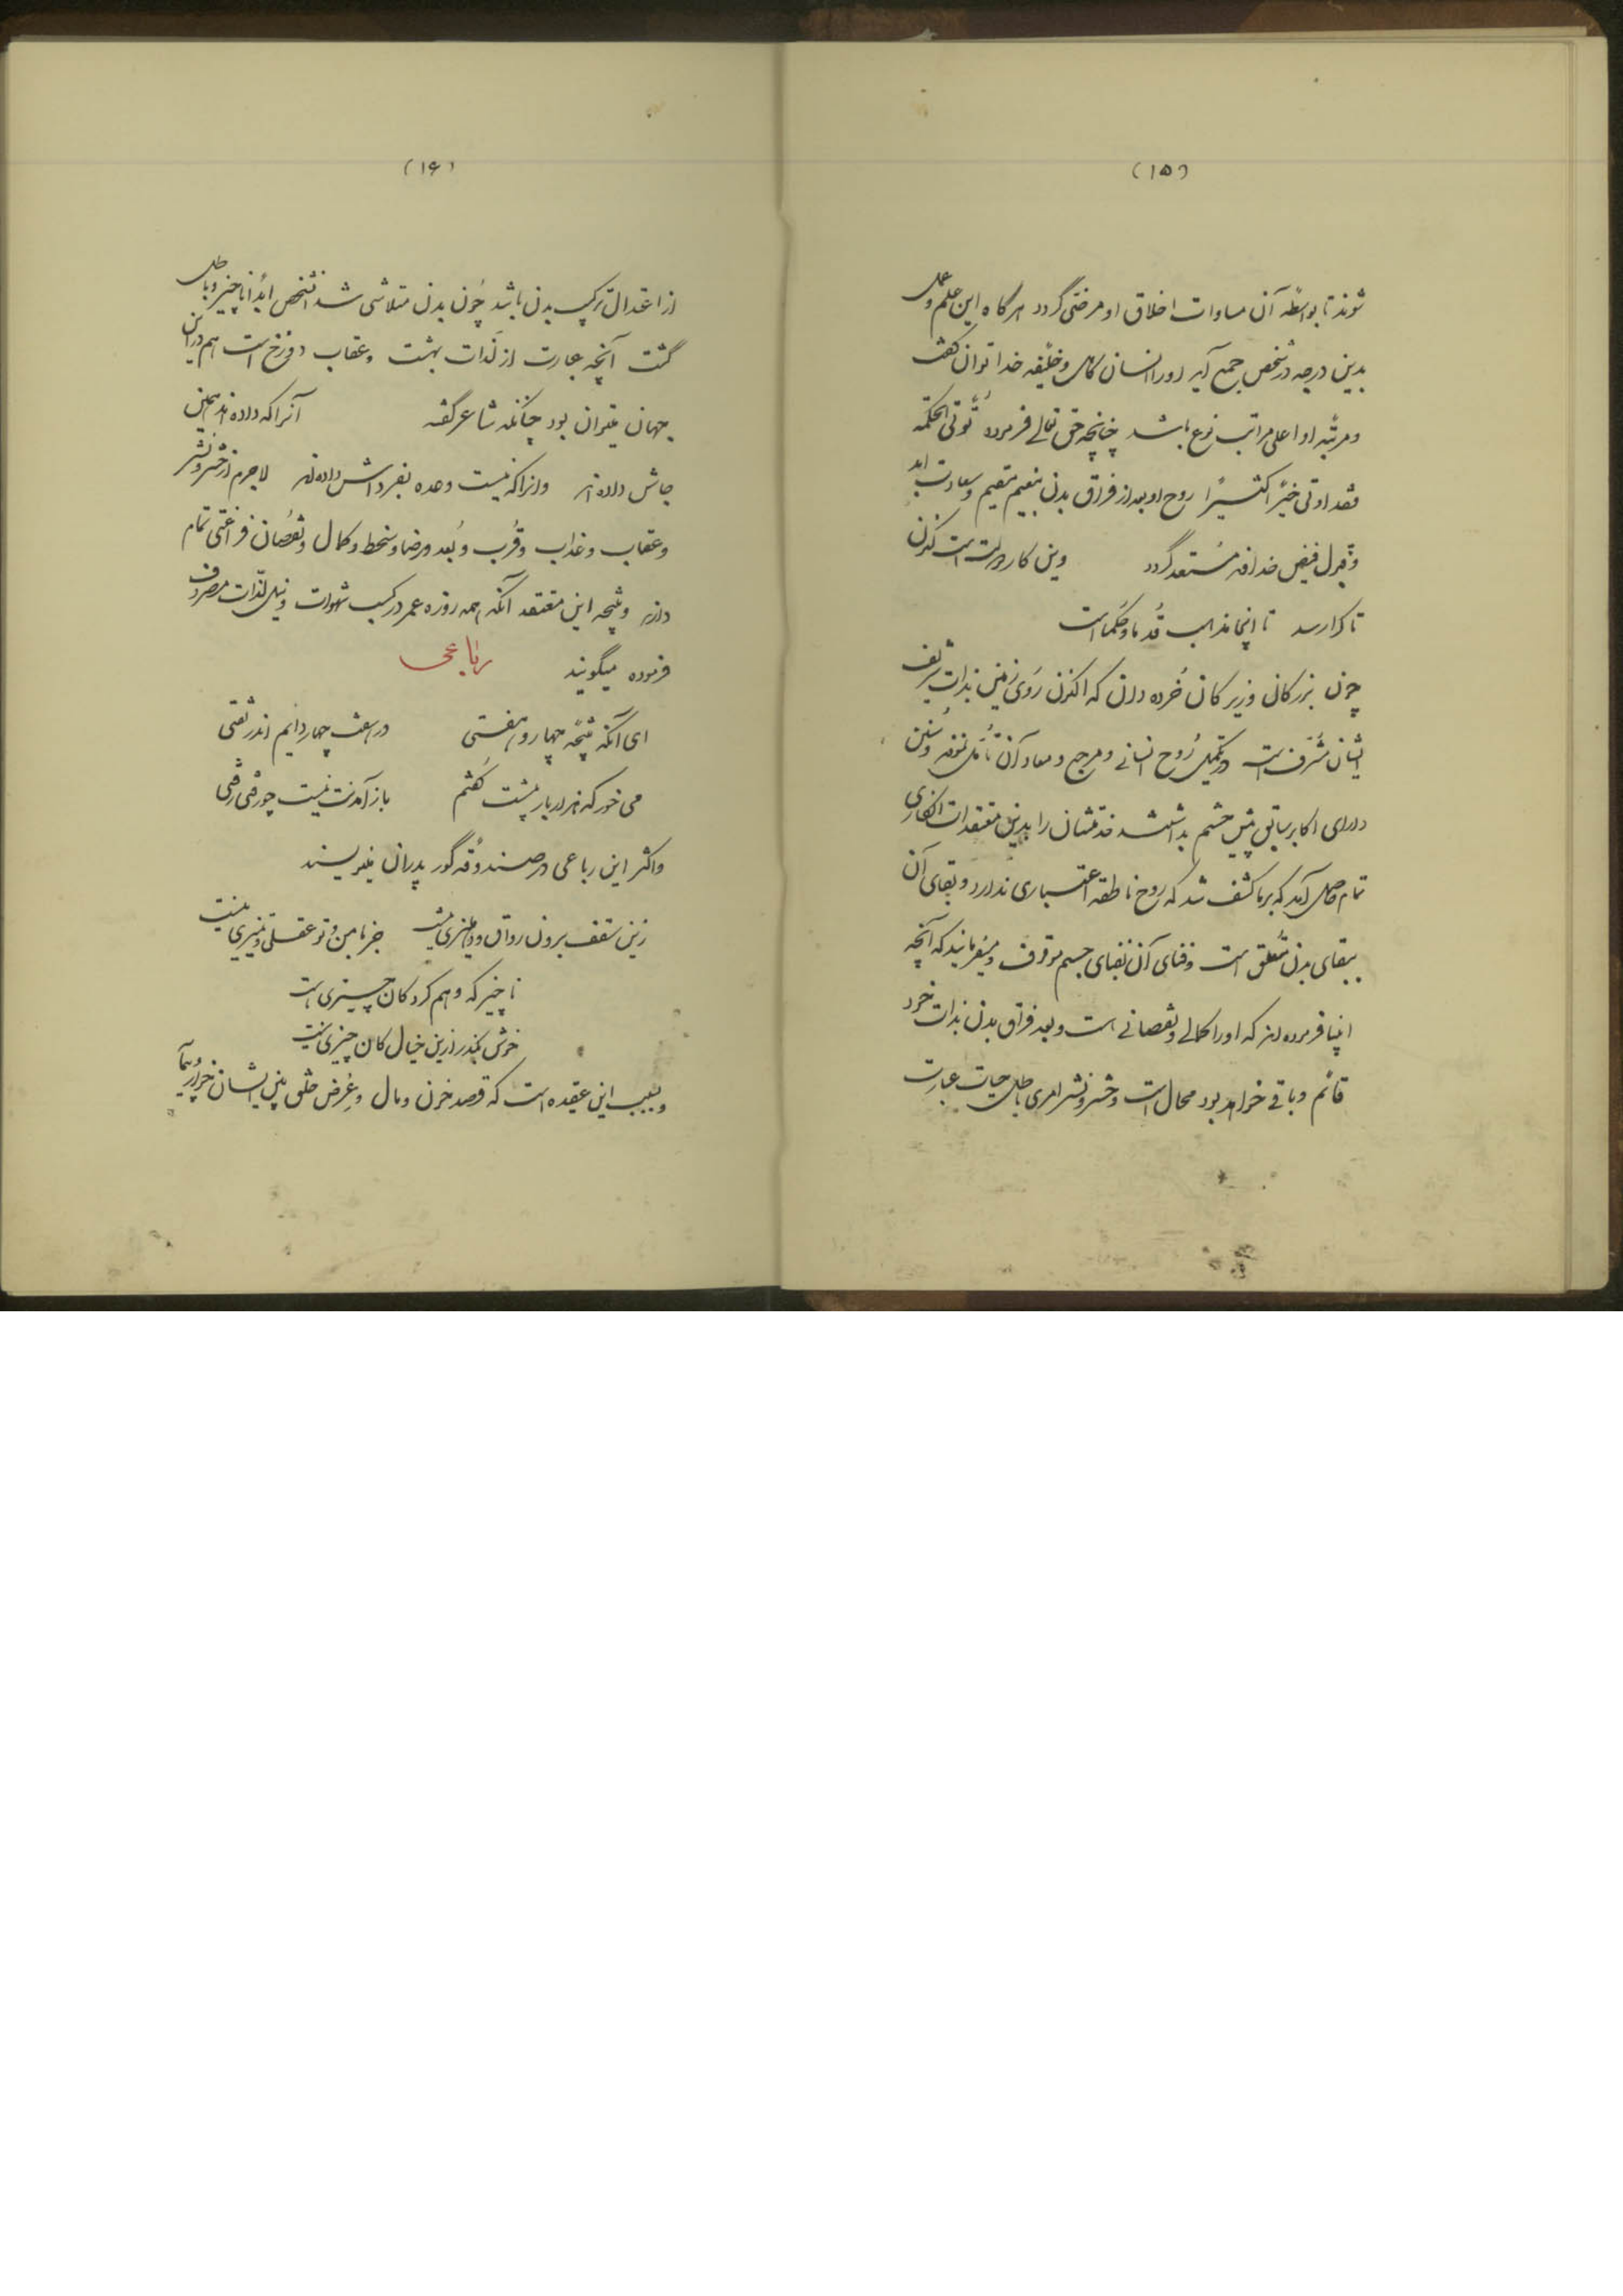 (۱۵)
شوند تا بواسطهٔ آن مساوات اخلاق او مرضی گردد هرگاه این علم و عمل
بدین درجه در شخص جمع آید او را انسان کامل و خلیفه خدا توان گفت
و مرتبه او اعلی مراتب نوع باشد چنانچه حق تعالی فرموده یؤتی الحکمة
فقد اوتی خیرًا کثیرًا روح او بعد از فراق بدن بنعیم مقیم و سعادت ابد
و قبول فیض خداوند مستعد گردد وین کار دولت است کنون
تا کرا رسد تا اینجا مذهب قدما و حکما است
چون بزرکان و زیرکان خرده دان که اکنون روی زمین بذات شریف
ایشان مشرف است در تکمیل روح انسانی و مرجع و معاد آن تأمل نموند و سنن
و رای اکابر سابق پیش چشم بداشتند خدمتشان را بدین معتقدات انکاری
تمام حاصل آمد که بر ما کشف شد که روح ناطقه اعتباری ندارد و بقای آن
ببقای بدن متعلق است و فنای آن بفنای جسم موقوف و میفرمایند که آنچه
انبیا فرموده اند که او را کمالی و نقصانی هست و بعد فراق بدن بذات خود
قائم و باقی خواهد بود محال است و حشر و نشر امری باطل حیات عبارت
(۱۶)
از اعتدال ترکیب بدن باشد چون بدن متلاشی شد آن شخص ابدًا ناچیز و باطل
گشت آنچه عبارت از لذات بهشت و عقاب دوزخ است هم در این
جهان میتوان بود چنانکه شاعر گفته آنرا که داده اند همین
جاش داده اند وانرا که نیست وعده بفرداش داده اند لاجرم از حشر و نشر
و عقاب و عذاب و قرب و بعد و رضا و سخط و کمال و نقصان فراغتی تمام
دارند و نتیجه این معتقد آنکه همه روزه عمر در کسب شهوات و نیل لذات مصروف
فرموده میگویند رباعی
ای آنکه نتیجه چهار و هفتی در هفت چهار دایم اندر تفتی
می خور که هزار بار پیشت گفتم باز آمدنت نیست چو رفتی رفتی
و اکثر این رباعی در صندوقه گور پدران مینویسند
زین سقف برون رواق و دهلیزی نیست جز با من و تو عقلی و تمییزی نیست
ناچیز که وهم کرد کان چیزی است
خوش بگذر ازین خیال کان چیزی نیست
و بسبب این عقیده است که قصد خون و مال و عرض خلق پیش ایشان خوار